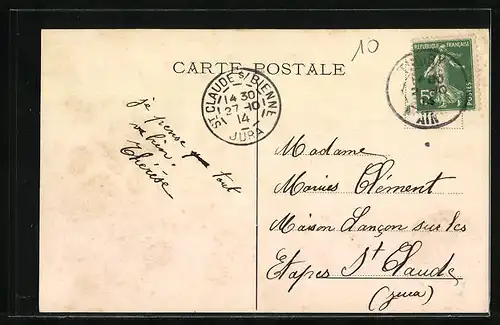 10
CARTE POSTALE
RÉPUBLIQUE FRANÇAISE
5c
POSTES
AIN
ST CLAUDE S/ BIENNE
14 30
27 -10
14
JURA
je pense que tout
va bien.
Thérèse
Madame
Clément
Maison Lançon sur les
Etapes St Claude
(Jura)